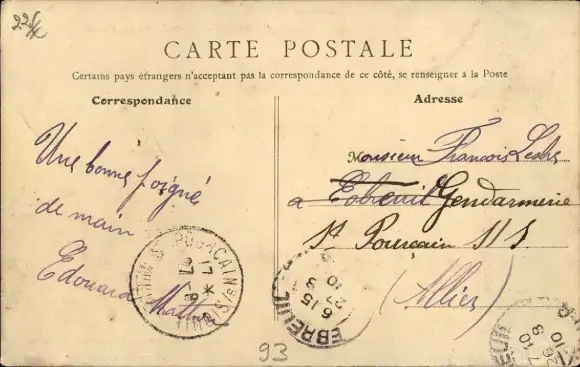 CARTE POSTALE
Certains pays étrangers n'acceptant pas la correspondance de ce côté, se renseigner à la Poste
Correspondance
Adresse
Une bonne poignée
de main
Edouard
Monsieur François
à Ebreuil Gendarmerie
St Pourçain s/ S
(Allier)
EBREUIL
6-15
27-3
10
93